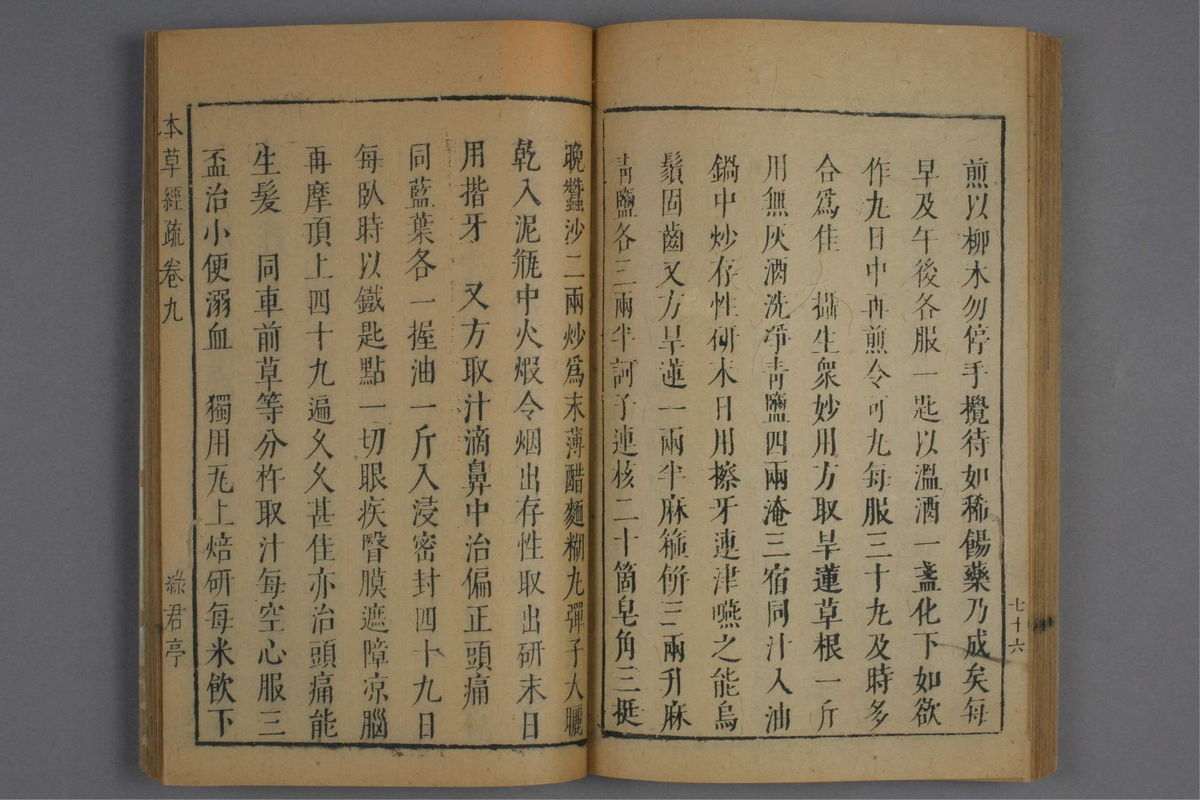 煎以柳木勿停手攪待如稀餳藥乃成矣每
早及午後各服一匙以溫酒一盞化下如欲
作丸日中再煎令可丸每服三十丸及時多
合為佳　攝生衆妙用方取旱蓮草根一斤
用無灰酒洗淨青鹽四兩淹三宿同汁入油
鍋中炒存性研末日用擦牙連津嚥之能烏
鬚固齒又方旱蓮一兩半麻箍餅三兩升麻
青鹽各三兩半訶子連核二十箇皂角三挺
七十六
晚蠶沙二兩炒為末薄醋麵糊丸彈子大曬
乾入泥瓶中火煆令烟出存性取出研末日
用揩牙　又方取汁滴鼻中治偏正頭痛
同藍葉各一握油一斤入浸密封四十九日
每臥時以鐵匙點一切眼疾瞖膜遮障凉腦
再摩頂上四十九遍久久甚佳亦治頭痛能
生髮　同車前草等分杵取汁每空心服三
盃治小便溺血　獨用瓦上焙研每米飲下
本草經疏卷九
綠君亭